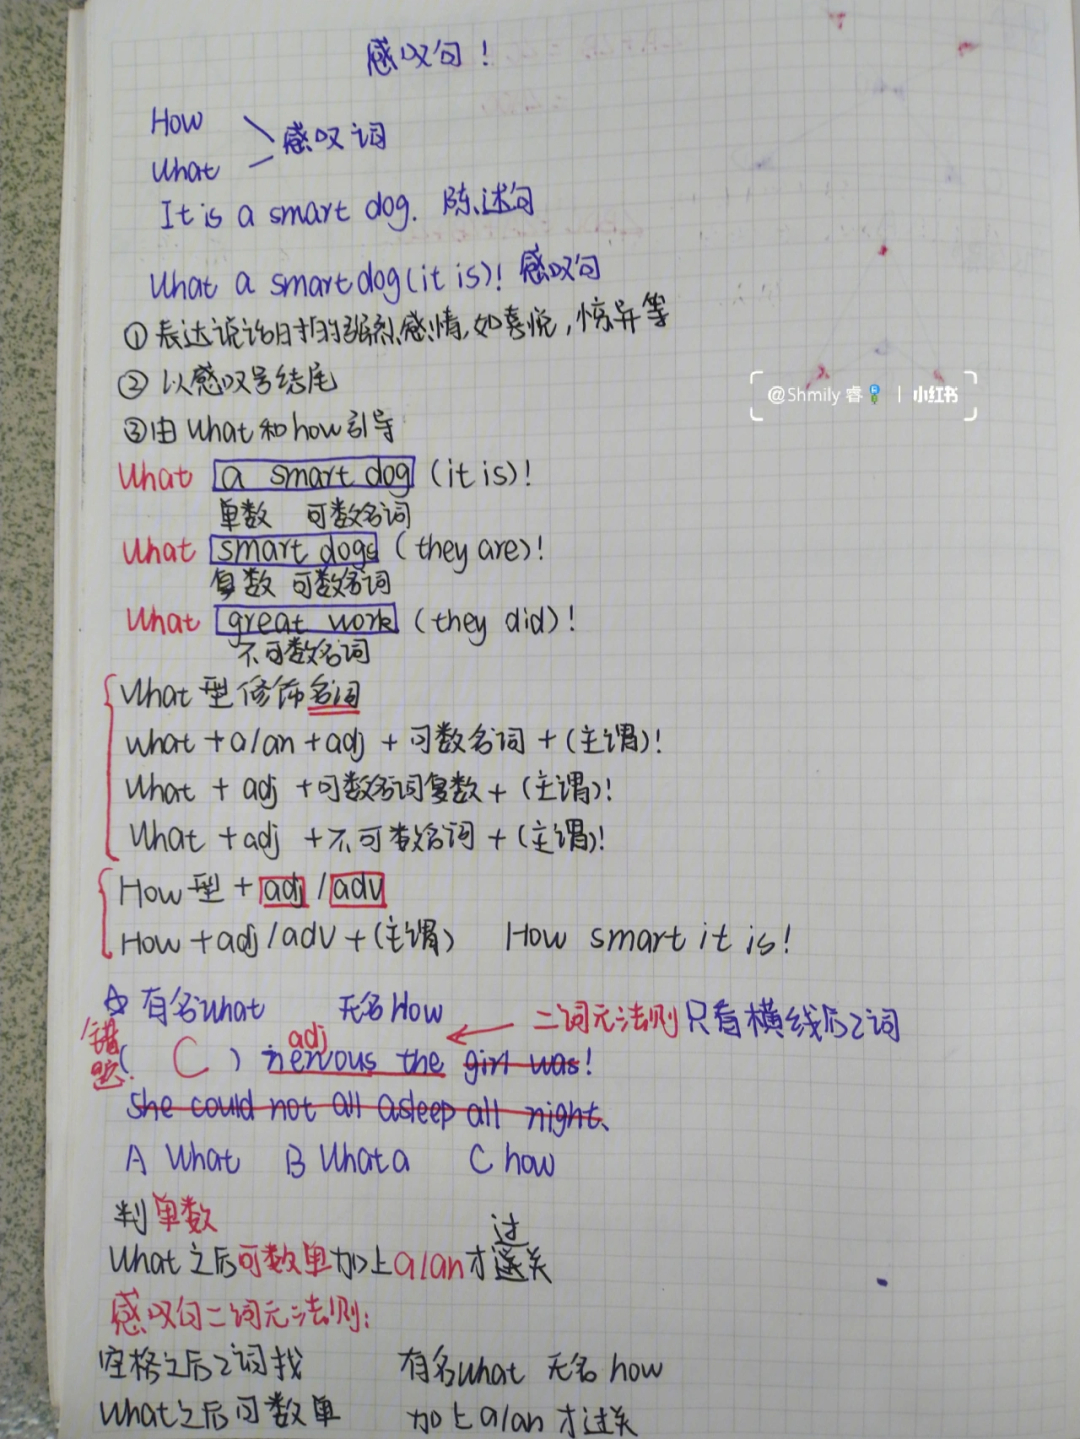 感叹句！
How
感叹词
What
It is a smart dog. 陈述句
What a smart dog(it is)! 感叹句
①表达说话时的强烈感情,如喜悦,惊异等
②以感叹号结尾
③由What和how引导
What a smart dog (it is)!
单数 可数名词
What smart dogs (they are)!
复数 可数名词
What great work (they did)!
不可数名词
What型修饰名词
what+a/an+adj+可数名词+(主谓)!
What+adj+可数名词复数+(主谓)!
What+adj+不可数名词+(主谓)!
How型+adj/adv
How+adj/adv+(主谓) How smart it is!
☆有名what 无名How 二词元法则只看横线后2词
错题
adj
( C ) nervous the girl was!
She could not all asleep all night.
A What B What a C how
判单数
过
What之后可数单加上a/an才关
感叹句二词元法则:
空格之后2词找 有名what 无名how
What之后可数单 加上a/an才过关
@Shmily 睿 | 小红书